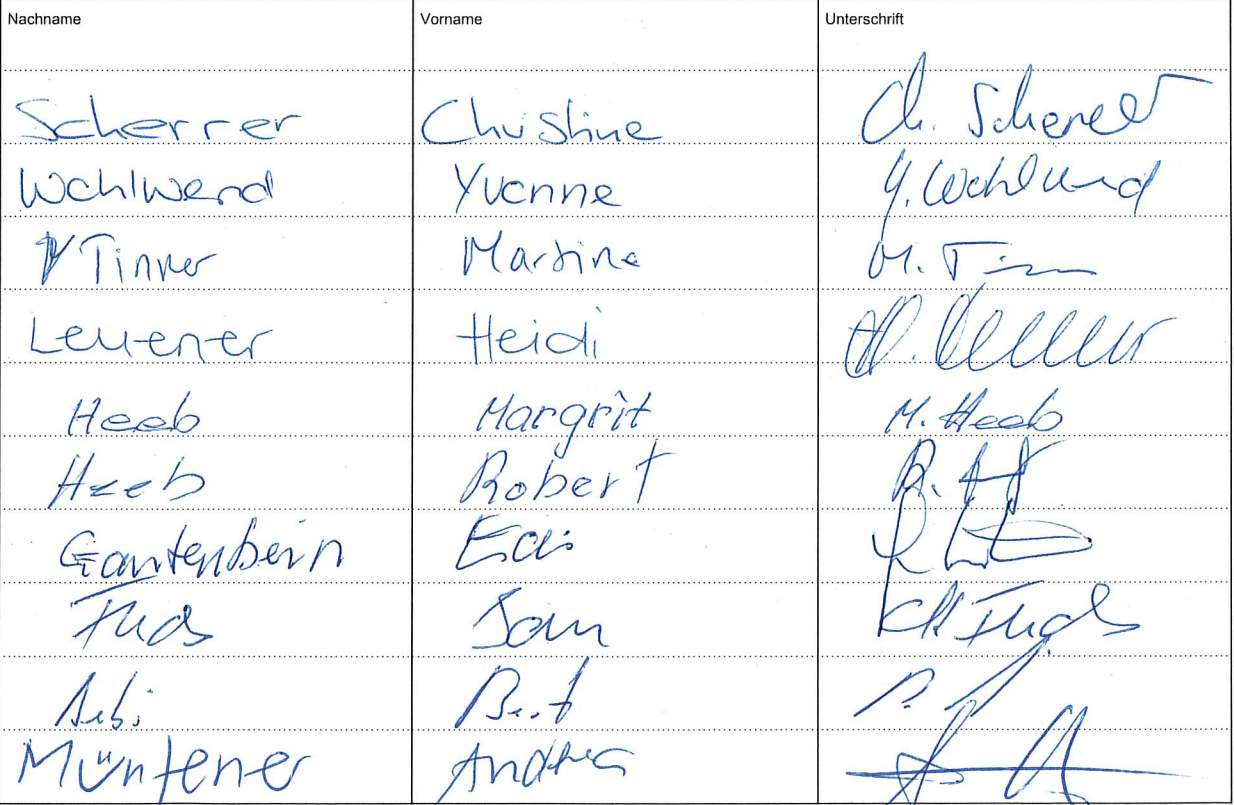 Nachname Vorname Unterschrift
Scherrer Christine Ch. Scherrer
Wohlwend Yvonne Y. Wohlwend
Tinner Martina M. Tinn
Leuener Heidi H.
Heeb Margrit M. Heeb
Heeb Robert R.
Gantenbein Edi
Fuchs Fuchs
Aebi Beat
Müntener Andrea